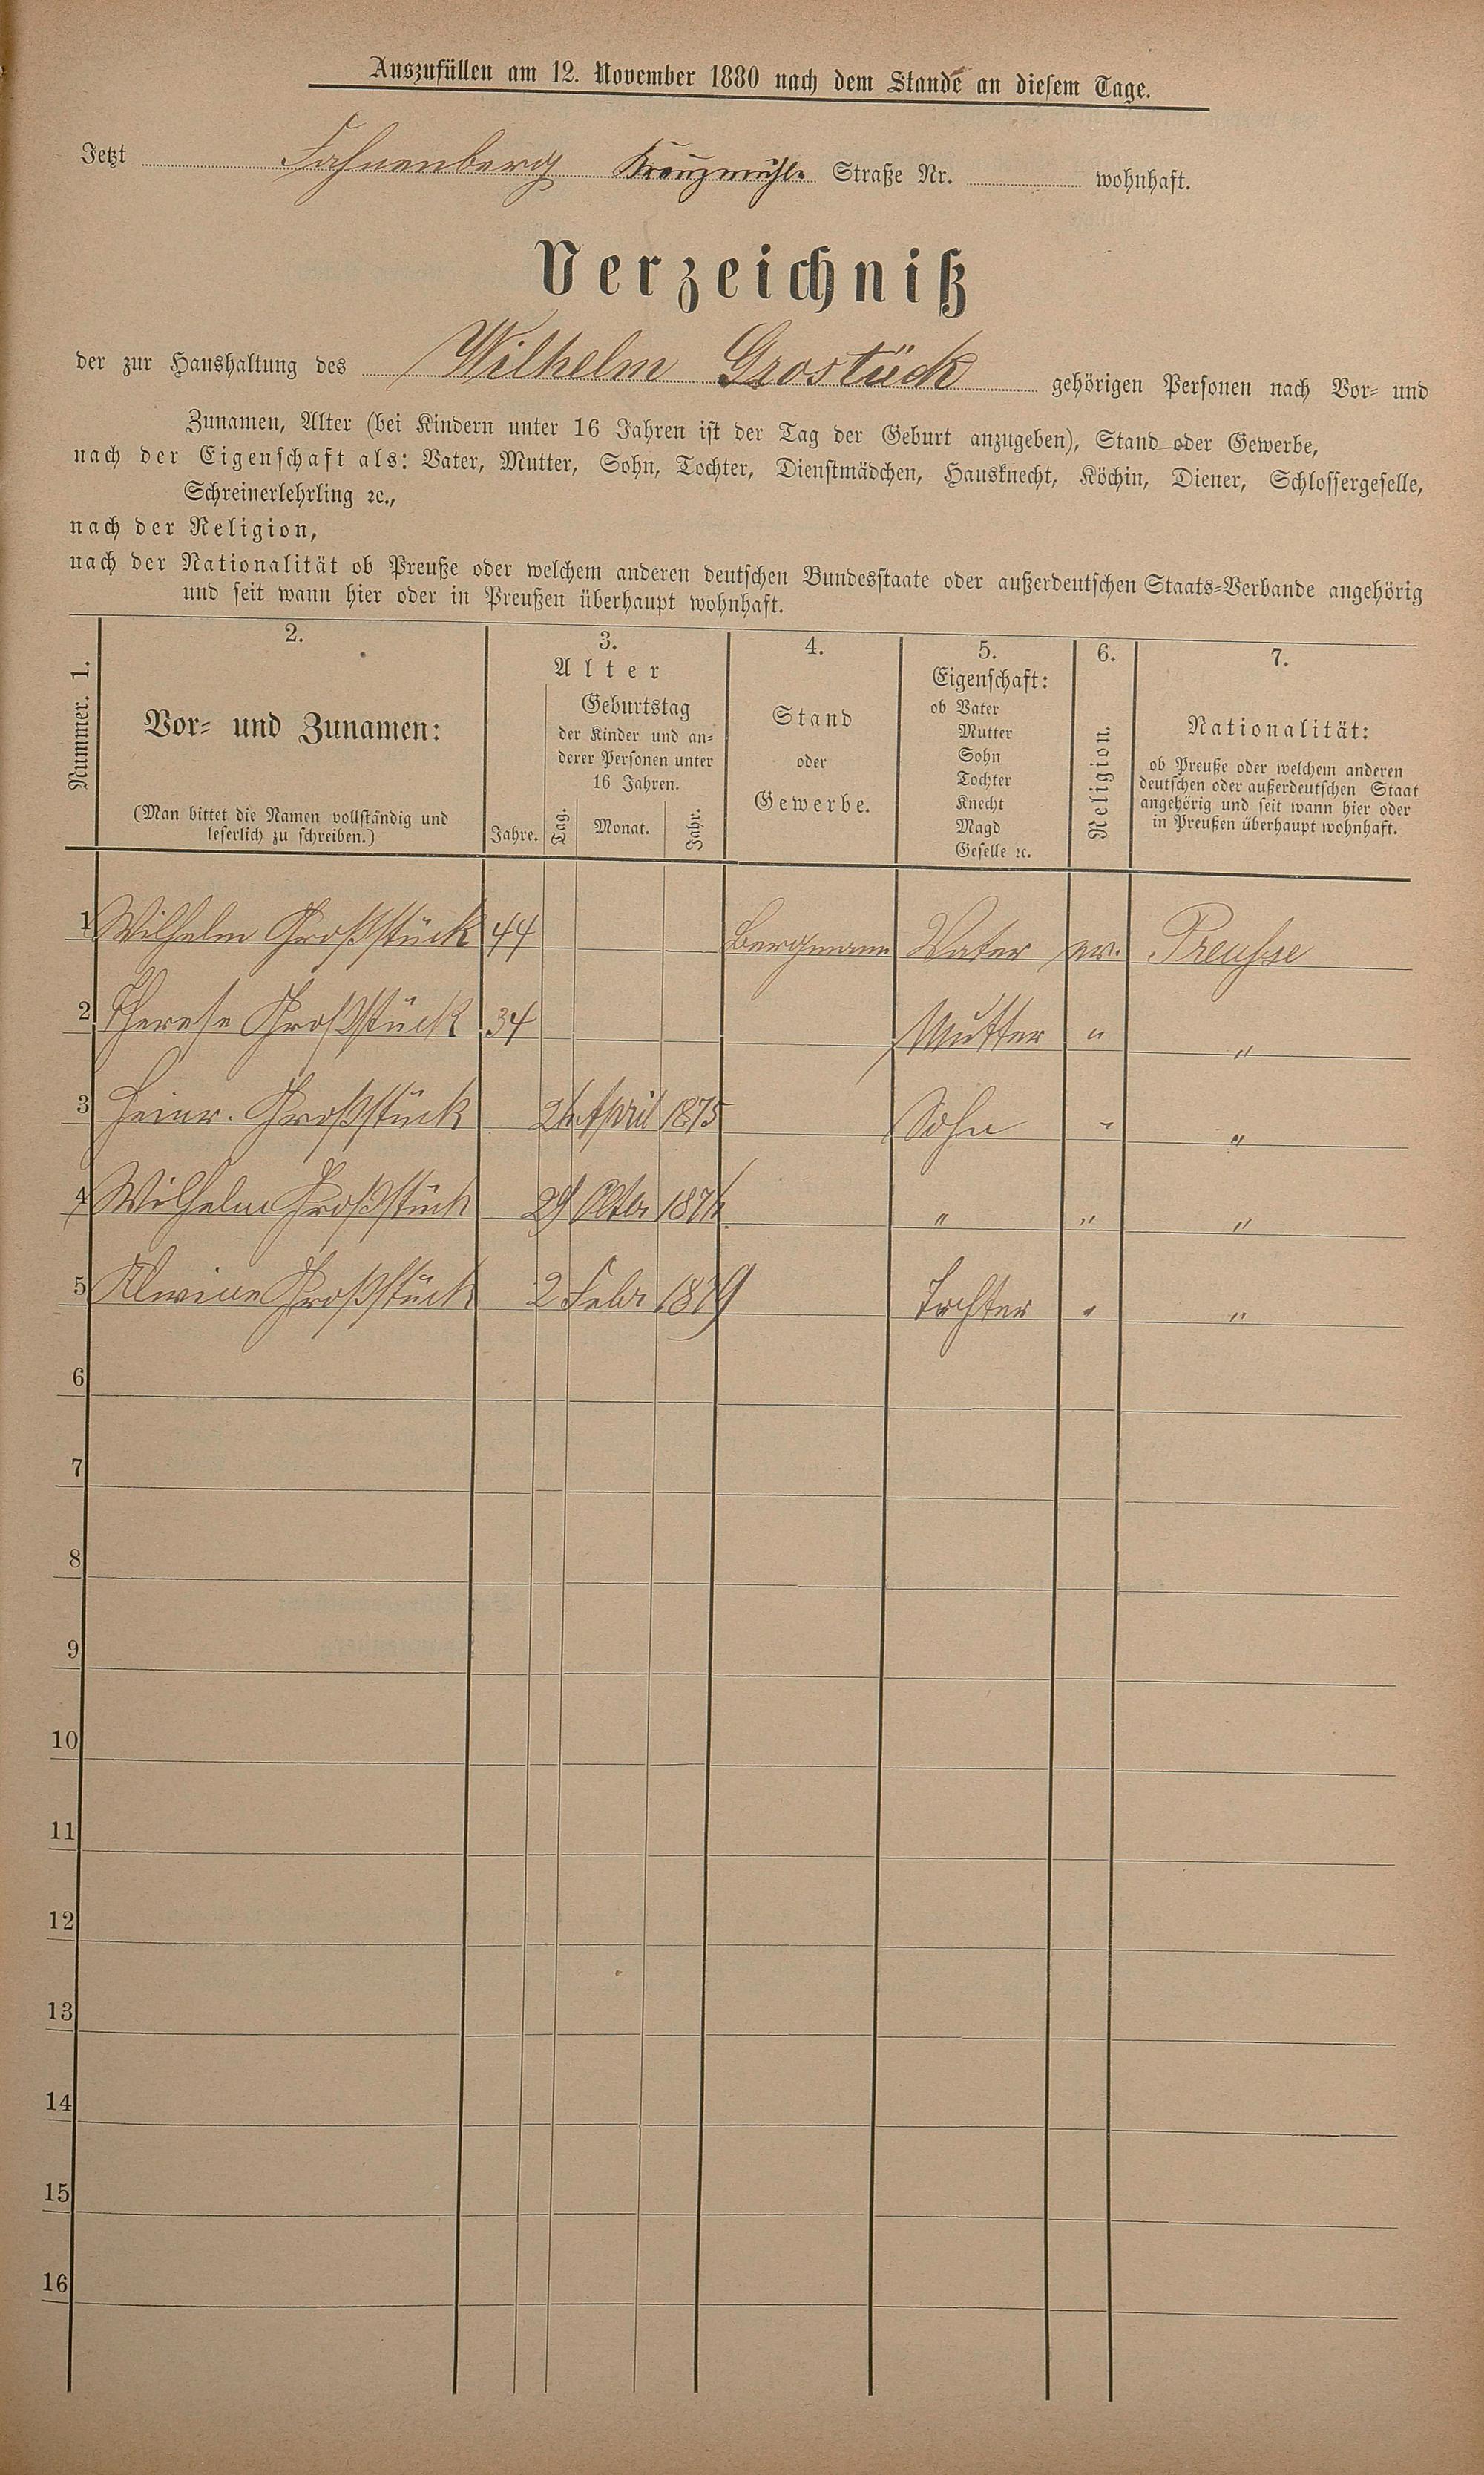 Auszufüllen am 12. November 1880 nach dem Stande an diesem Tage.
Jetzt Fahnenberg Kreuzmühle Straße Nr. wohnhaft.
Verzeichniß
der zur Haushaltung des Wilhelm Grostück gehörigen Personen nach Vor- und
Zunamen, Alter (bei Kindern unter 16 Jahren ist der Tag der Geburt anzugeben), Stand oder Gewerbe,
nach der Eigenschaft als: Vater, Mutter, Sohn, Tochter, Dienstmädchen, Hausknecht, Köchin, Diener, Schlossergeselle,
Schreinerlehrling ꝛc.,
nach der Religion,
nach der Nationalität ob Preuße oder welchem anderen deutschen Bundesstaate oder außerdeutschen Staats-Verbande angehörig
und seit wann hier oder in Preußen überhaupt wohnhaft.
Nummer. 1.
2.
Vor- und Zunamen:
(Man bittet die Namen vollständig und
leserlich zu schreiben.)
3.
Alter
Jahre.
Geburtstag
der Kinder und an-
derer Personen unter
16 Jahren.
Tag. Monat. Jahr.
4.
Stand
oder
Gewerbe.
5.
Eigenschaft:
ob Vater
Mutter
Sohn
Tochter
Knecht
Magd
Geselle ꝛc.
6.
Religion.
7.
Nationalität:
ob Preuße oder welchem anderen
deutschen oder außerdeutschen Staat
angehörig und seit wann hier oder
in Preußen überhaupt wohnhaft.
1 Wilhelm Großstück 44 Bergmann Vater ev. Preusse
2 Therese Großstück 34 Mutter " "
3 Heinr. Großstück April 1875 Sohn " "
4 Wilhelm Großstück 29 Oktbr " " "
5 Alwine Großstück 2 Febr 1879 Tochter " "
6
7
8
9
10
11
12
13
14
15
16